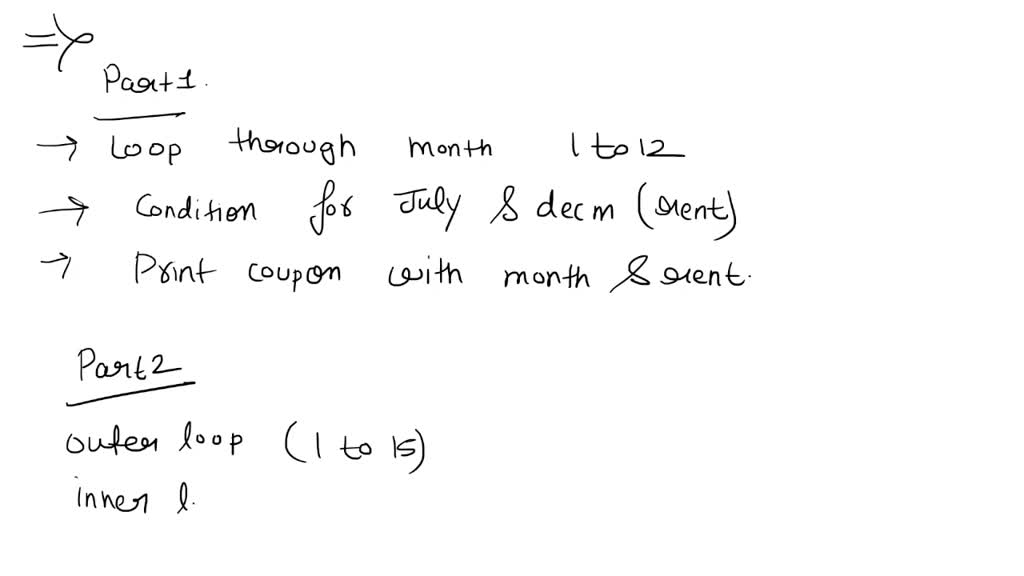 ⇒
Part 1.
→ Loop thorough month 1 to 12
→ Condition for July & decm (rent)
→ Print coupon with month & rent.
Part 2
outer loop (1 to 15)
inner l.